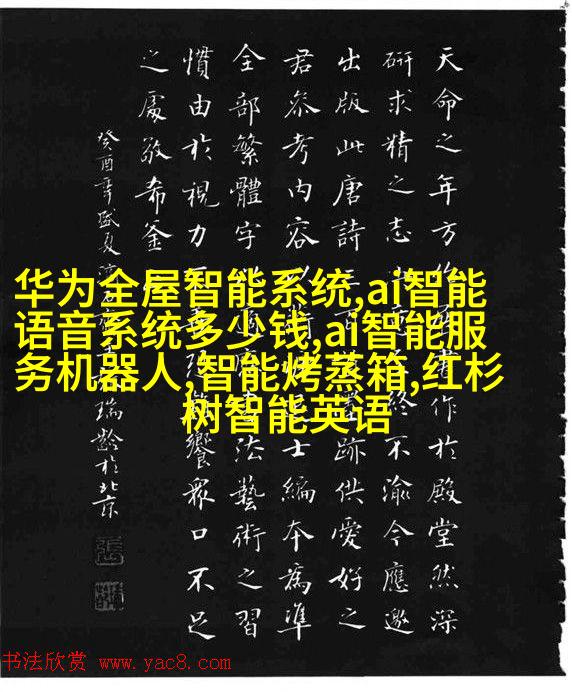 天命之年方作於殿堂然深
研求精之志終不渝今應邀
出版此唐詩三百跡供愛好之
君参考内容以士編本為準
全部繁體字法藝術之習
慣由於視力饗眾口不足
之處敬希鉴
癸酉年盛夏瑞齡於北京
华为全屋智能系统,ai智能
语音系统多少钱,ai智能服
务机器人,智能烤蒸箱,红杉
树智能英语
书法欣赏 www.yac8.com